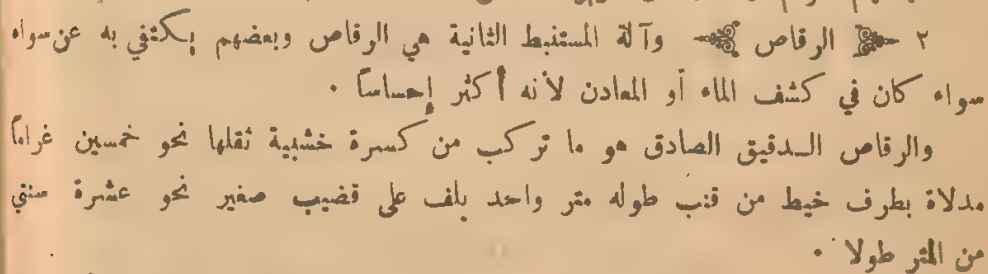 ٢ الرقاص وآلة المستنبط الثانية هي الرقاص وبعضهم يكتفي به عن سواه
سواء كان في كشف الماء أو المعادن لأنه أكثر إحساساً .
والرقاص الدقيق الصادق هو ما تركب من كسرة خشبية ثقلها نحو خمسين غراماً
مدلاة بطرف خيط من قنب طوله متر واحد يلف على قضيب صغير نحو عشرة سنتي
من المتر طولا .